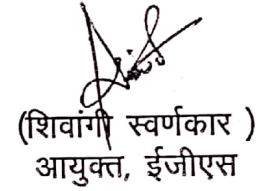 (शिवांगी स्वर्णकार )
आयुक्त, ईजीएस